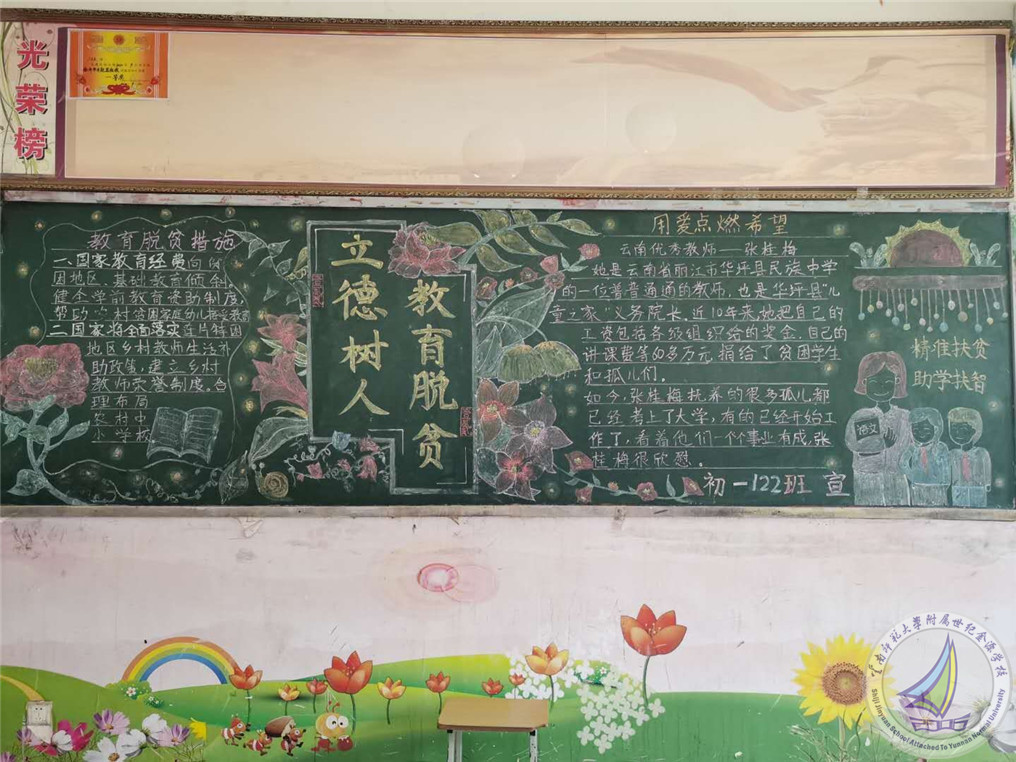 光荣榜
教育脱贫措施
一.国家教育经费向
困地区、基础教育倾斜
健全学前教育资助制度,
帮助 村贫困家庭幼儿接受教育
二.国家将全面落实连片特困
地区乡村教师生活补
助政策,建立乡村
教师荣誉制度,合
理布局
农村中
小学校
立德树人
教育脱贫
用爱点燃希望
云南优秀教师——张桂梅
她是云南省丽江市华坪县民族中学
的一位普普通通的教师,也是华坪县“儿
童之家”义务院长,近10年来她把自己的
工资包括各级组织给的奖金,自己的
讲课费等60多万元,捐给了贫困学生
和孤儿们。
如今,张桂梅抚养的很多孤儿都
已经考上了大学,有的已经开始工
作了,看着他们一个个事业有成,张
桂梅很欣慰。
初一122班 宣
精准扶贫
助学扶智
语文
云南师范大学附属世纪金源学校
Shiji Jinyuan School Attached To Yunnan Normal University